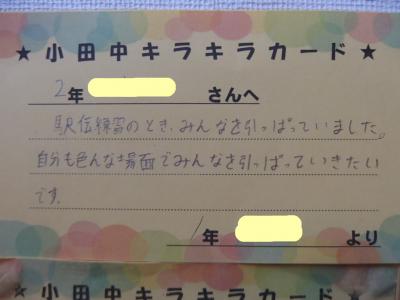 ★小田中キラキラカード★
2年 さんへ
駅伝練習のとき、みんなを引っぱっていました。
自分も色んな場面でみんなを引っぱっていきたい
です。
1年 より
★小田中キラキラカード★